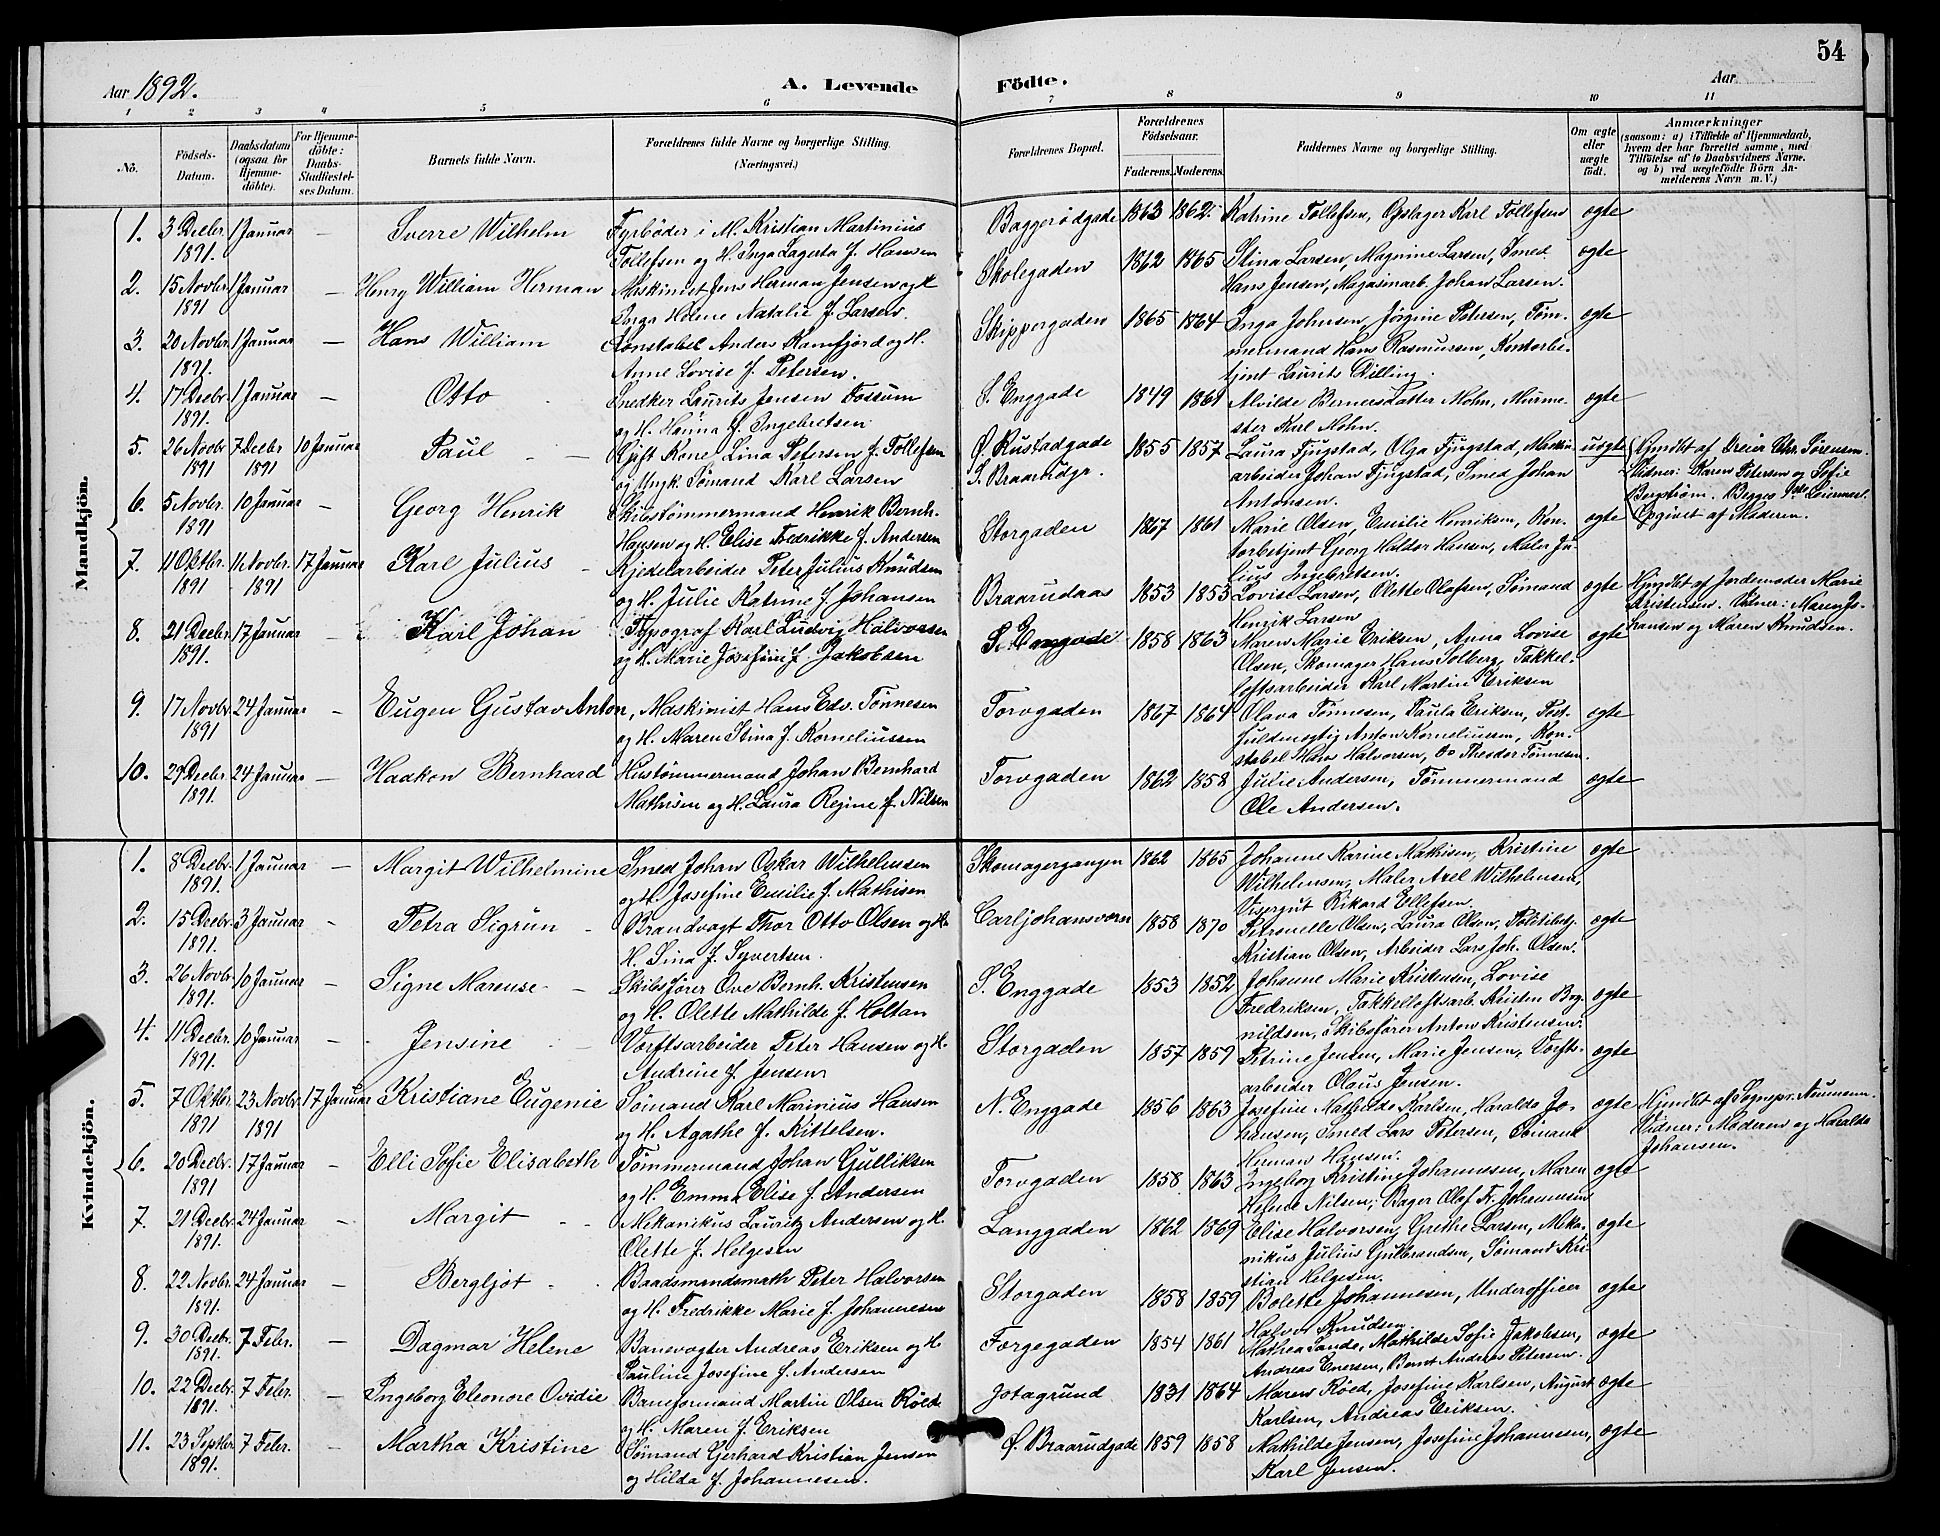 54
Aar 1892.
A. Levende Födte.
Aar
1 2 3 4 5 6 7 8 9 10 11
No.
Födsels-Datum.
Daabsdatum (ogsaa for Hjemmedöbte).
For Hjemmedöbte: Daabs-Stadfæstelses Datum.
Barnets fulde Navn.
Forældrenes fulde Navne og borgerlige Stilling.
(Næringsvei.)
Forældrenes Bopæl.
Forældrenes Födselsaar.
Faderens. Moderens.
Faddernes Navne og borgerlige Stilling.
Om ægte eller uægte født.
Anmærkninger
(saasom: a) i Tilfælde af Hjemmedaab, hvem der har forrettet samme, med Tilføielse af to Daabsvidners Navne, og b) ved uægtefödte Börn Anmelderens Navn m. V.)
Mandkjön.
1. 3 Decbr. 1891. 1 Januar — Sverre Wilhelm
Fyrbøder i M. Kristian Martinius
Tollefsen og H. Inga Lagerta f. Hansen
Baggerødgade 1863 1862. Katrine Tollefsen, Opslager Karl Tollefsen ægte
2. 15 Novbr. 1891 1 Januar — Henry William Herman
Maskinist Jens Herman Jensen og H.
Inga Helene Natalie f. Larsen.
Skolegaden 1862 1865 Stina Larsen, Magnine Larsen, Smed
Hans Jensen, Magasinarb. Johan Larsen. ægte
3. 20 Novbr. 1891. 1 Januar — Hans William
Konstabel Anders Ramfjord og H.
Anne Lovise f. Petersen.
Skippergaden 1865 1864 Inga Johnsen, Jørgine Petersen, Tøm-
mermand Hans Rasmussen, Kontorbe-
tjent Laurits Dilling. ægte
4. 17 Decbr. 1891. 1 Januar — Otto
Snedker Laurits Jensen Fossum
og H. Hanna f. Ingebretsen.
S. Enggade 1849 1861 Alvilde Bernersdatter Mohn, Murme-
ster Karl Mohn. ægte
5. 26 Novbr 1891 7 Decbr 1891 10 Januar Paul
Gift Kone Lina Petersen f. Tollefsen
og Ungk. Sømand Karl Larsen
Ø. Rustadgade
S. Braarudgr. 1855 1857 Laura Fjugstad, Olga Fjugstad, Maskin-
arbeider Johan Fjugstad, Smed Johan
Antonsen. uægte
Hjmdbt af Dreier Chr. Sørensen.
Vidner: Karen Petersen og Sofie
Bergstrøm. Begges 1ste Leiermaal.
Opgivet af Moderen.
6. 5 Novbr. 1891 10 Januar — Georg Henrik
Skibstømmermand Henrik Bernh.
Hansen og H. Elise Fredrikke f. Andersen
Storgaden 1867 1861 Marie Olsen, Emilie Henriksen, Kon-
torbetjent Georg Haldor Hansen, Maler Ju-
lius Ingebretsen. ægte
7. 11 Oktbr. 1891 11 Novbr. 1891 17 Januar Karl Julius
Kjedelarbeider Peter Julius Knudsen
og H. Julie Katrine f. Johansen
Braarudaas 1853 1853 Lovise Larsen, Olette Olafsen, Sømand
Henrik Larsen ægte
Hjmdbt af Jordemoder Marie
Kristensen. Vidner: Maren Jo-
hansen og Maren Knudsen.
8. 21 Decbr 1891. 17 Januar — Karl Johan
Typograf Karl Ludvig Halvorsen
og H. Marie Josefine f. Jakobsen
S. Enggade 1858 1863 Maren Marie Eriksen, Anna Lovise
Olsen, Skomager Hans Solberg, Takkel-
loftsarbeider Karl Martin Eriksen ægte
9. 17 Novbr. 1891 24 Januar — Eugen Gustav Anton,
Maskinist Hans Edv. Tønnesen
og H. Maren Stina f. Korneliussen
Torvgaden 1867 1864 Olava Tønnesen, Paula Eriksen, Post-
fuldmægtig Anton Korneliussen, Kon-
stabel Hans Halvorsen, Do Theodor Tønnesen. ægte
10. 29 Decbr. 1891. 24 Januar — Haakon Bernhard
Hustømmermand Johan Bernhard
Mathisen og H. Laura Regine f. Nilsen
Torvgaden 1862 1858 Julie Andersen, Tømmermand
Ole Andersen. ægte
Kvindekjön.
1. 8 Decbr. 1891. 1 Januar — Margit Wilhelmine
Smed Johan Oskar Wilhelmsen
og H. Josefine Emilie f. Mathisen
Skomagergangen 1862 1865 Johanne Karine Mathisen, Kristine
Wilhelmsen, Maler Axel Wilhelmsen,
Visergut Rikard Ellefsen. ægte
2. 15 Decbr. 1891. 3 Januar — Petra Sigrun
Brandvagt Thor Otto Olsen og H.
H. Sina f. Syvertsen.
Carljohansværn 1858 1870 Petronelle Olsen, Laura Olsen, Politibetj.
Kristian Olsen, Arbeider Lars Joh. Olsen. ægte
3. 26 Novbr. 1891. 10 Januar — Signe Marense
Skibsfører Ove Bernh. Kristensen
og H. Olette Mathilde f. Holtan
S. Enggade 1853 1852 Johanne Marie Kristensen, Lovise
Fredriksen, Takkelloftsarb. Kristen Bog-
nildsen, Skibsfører Anton Kristensen. ægte
4. 11 Decbr. 1891. 10 Januar — Jensine
Værftsarbeider Peter Hansen og H.
Andrine f. Jensen
Storgaden 1857 1859 Petrine Jensen, Marie Jensen, Værfts-
arbeider Olaus Jensen. ægte
5. 7 Oktbr. 1891 23 Novbr. 1891 17 Januar Kristiane Eugenie
Sømand Karl Marinius Hansen
og H. Agathe f. Kittelsen.
N. Enggade 1856 1863 Josefine Mathilde Karlsen, Haralda Jo-
hansen, Smed Lars Petersen, Sømand
Herman Hansen. ægte
Hjmdbt af Sognepr. Neumann.
Vidner: Moderen og Haralda
Johansen.
6. 20 Decbr. 1891 17 Januar — Elli Sofie Elisabeth
Tømmermand Johan Gulliksen
og H. Emma Elise f. Andersen
Torvgaden 1858 1863 Ingeborg Kristine Johannesen, Maren
Helene Nilsen, Bager Olaf Fr. Johannesen ægte
7. 21 Decbr. 1891. 24 Januar — Margit
Mekanikus Lauritz Andersen og H.
Olette f. Helgesen
Langgaden 1862 1869 Elise Halvorsen, Grethe Larsen, Meka-
nikus Julius Gulbrandsen, Sømand Kri-
stian Helgesen. ægte
8. 22 Novbr. 1891. 24 Januar — Bergljot
Baadsmandsmath Peter Halvorsen
og H. Fredrikke Marie f. Johannesen
Storgaden 1858 1859 Bolette Johannesen, Underofficer
Halvor Knudsen. ægte
9. 30 Decbr. 1891. 7 Febr. — Dagmar Helene
Banevogter Andreas Eriksen og H.
Pauline Josefine f. Andersen
Færgegaden 1854 1861 Mathea Sande, Mathilde Sofie Jakobsen,
Andreas Evensen, Bernt Andreas Petersen. ægte
10. 22 Decbr. 1891. 7 Febr. — Ingeborg Eleonore Ovidie
Baneformand Martin Olsen Røed
og H. Maren f. Eriksen
Jotagrund 1831 1864 Maren Røed, Josefine Karlsen, August
Karlsen, Andreas Eriksen. ægte
11. 23 Septbr. 1891. 7 Febr. — Martha Kristine
Sømand Gerhard Kristian Jensen
og Hilda f. Johannesen.
Ø. Braarudgade 1859 1858 Mathilde Jensen, Josefine Johannesen,
Karl Jensen. ægte